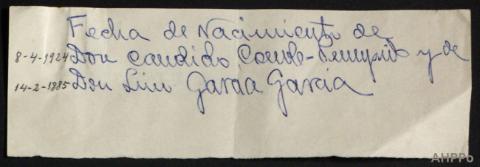 Fecha de Nacimiento de
8-4-1924 Don Candido Conde-Pumpido y de
14-2-1885 Don Luis Garcia Garcia
AHPPo